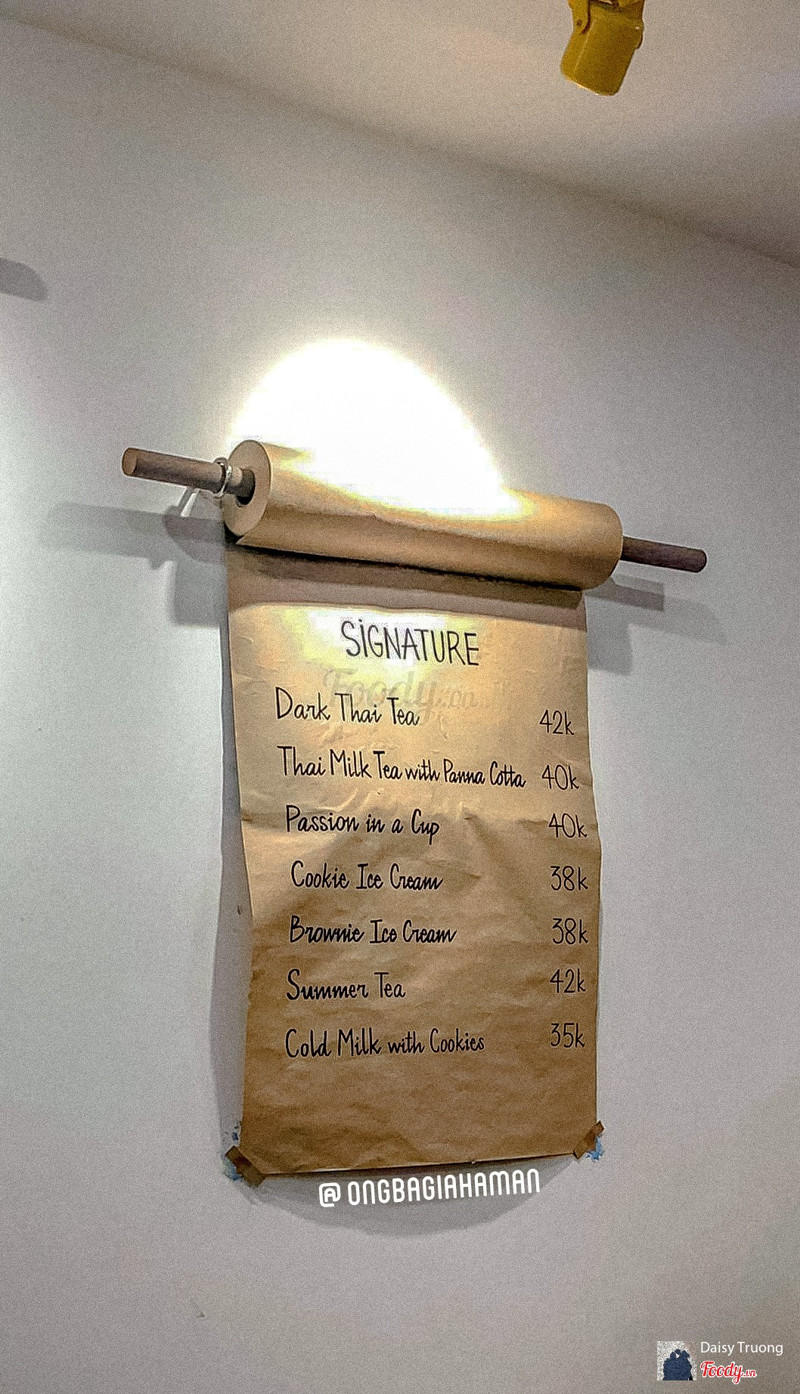 SiGNATURE
Foody.vn
Dark Thai Tea 42k
Thai Milk Tea with Panna Cotta 40k
Passion in a Cup 40k
Cookie Ice Cream 38k
Brownie Ice Cream 38k
Summer Tea 42k
Cold Milk with Cookies 35k
@ONGBAGIAHAMAN
Daisy Truong
Foody.vn